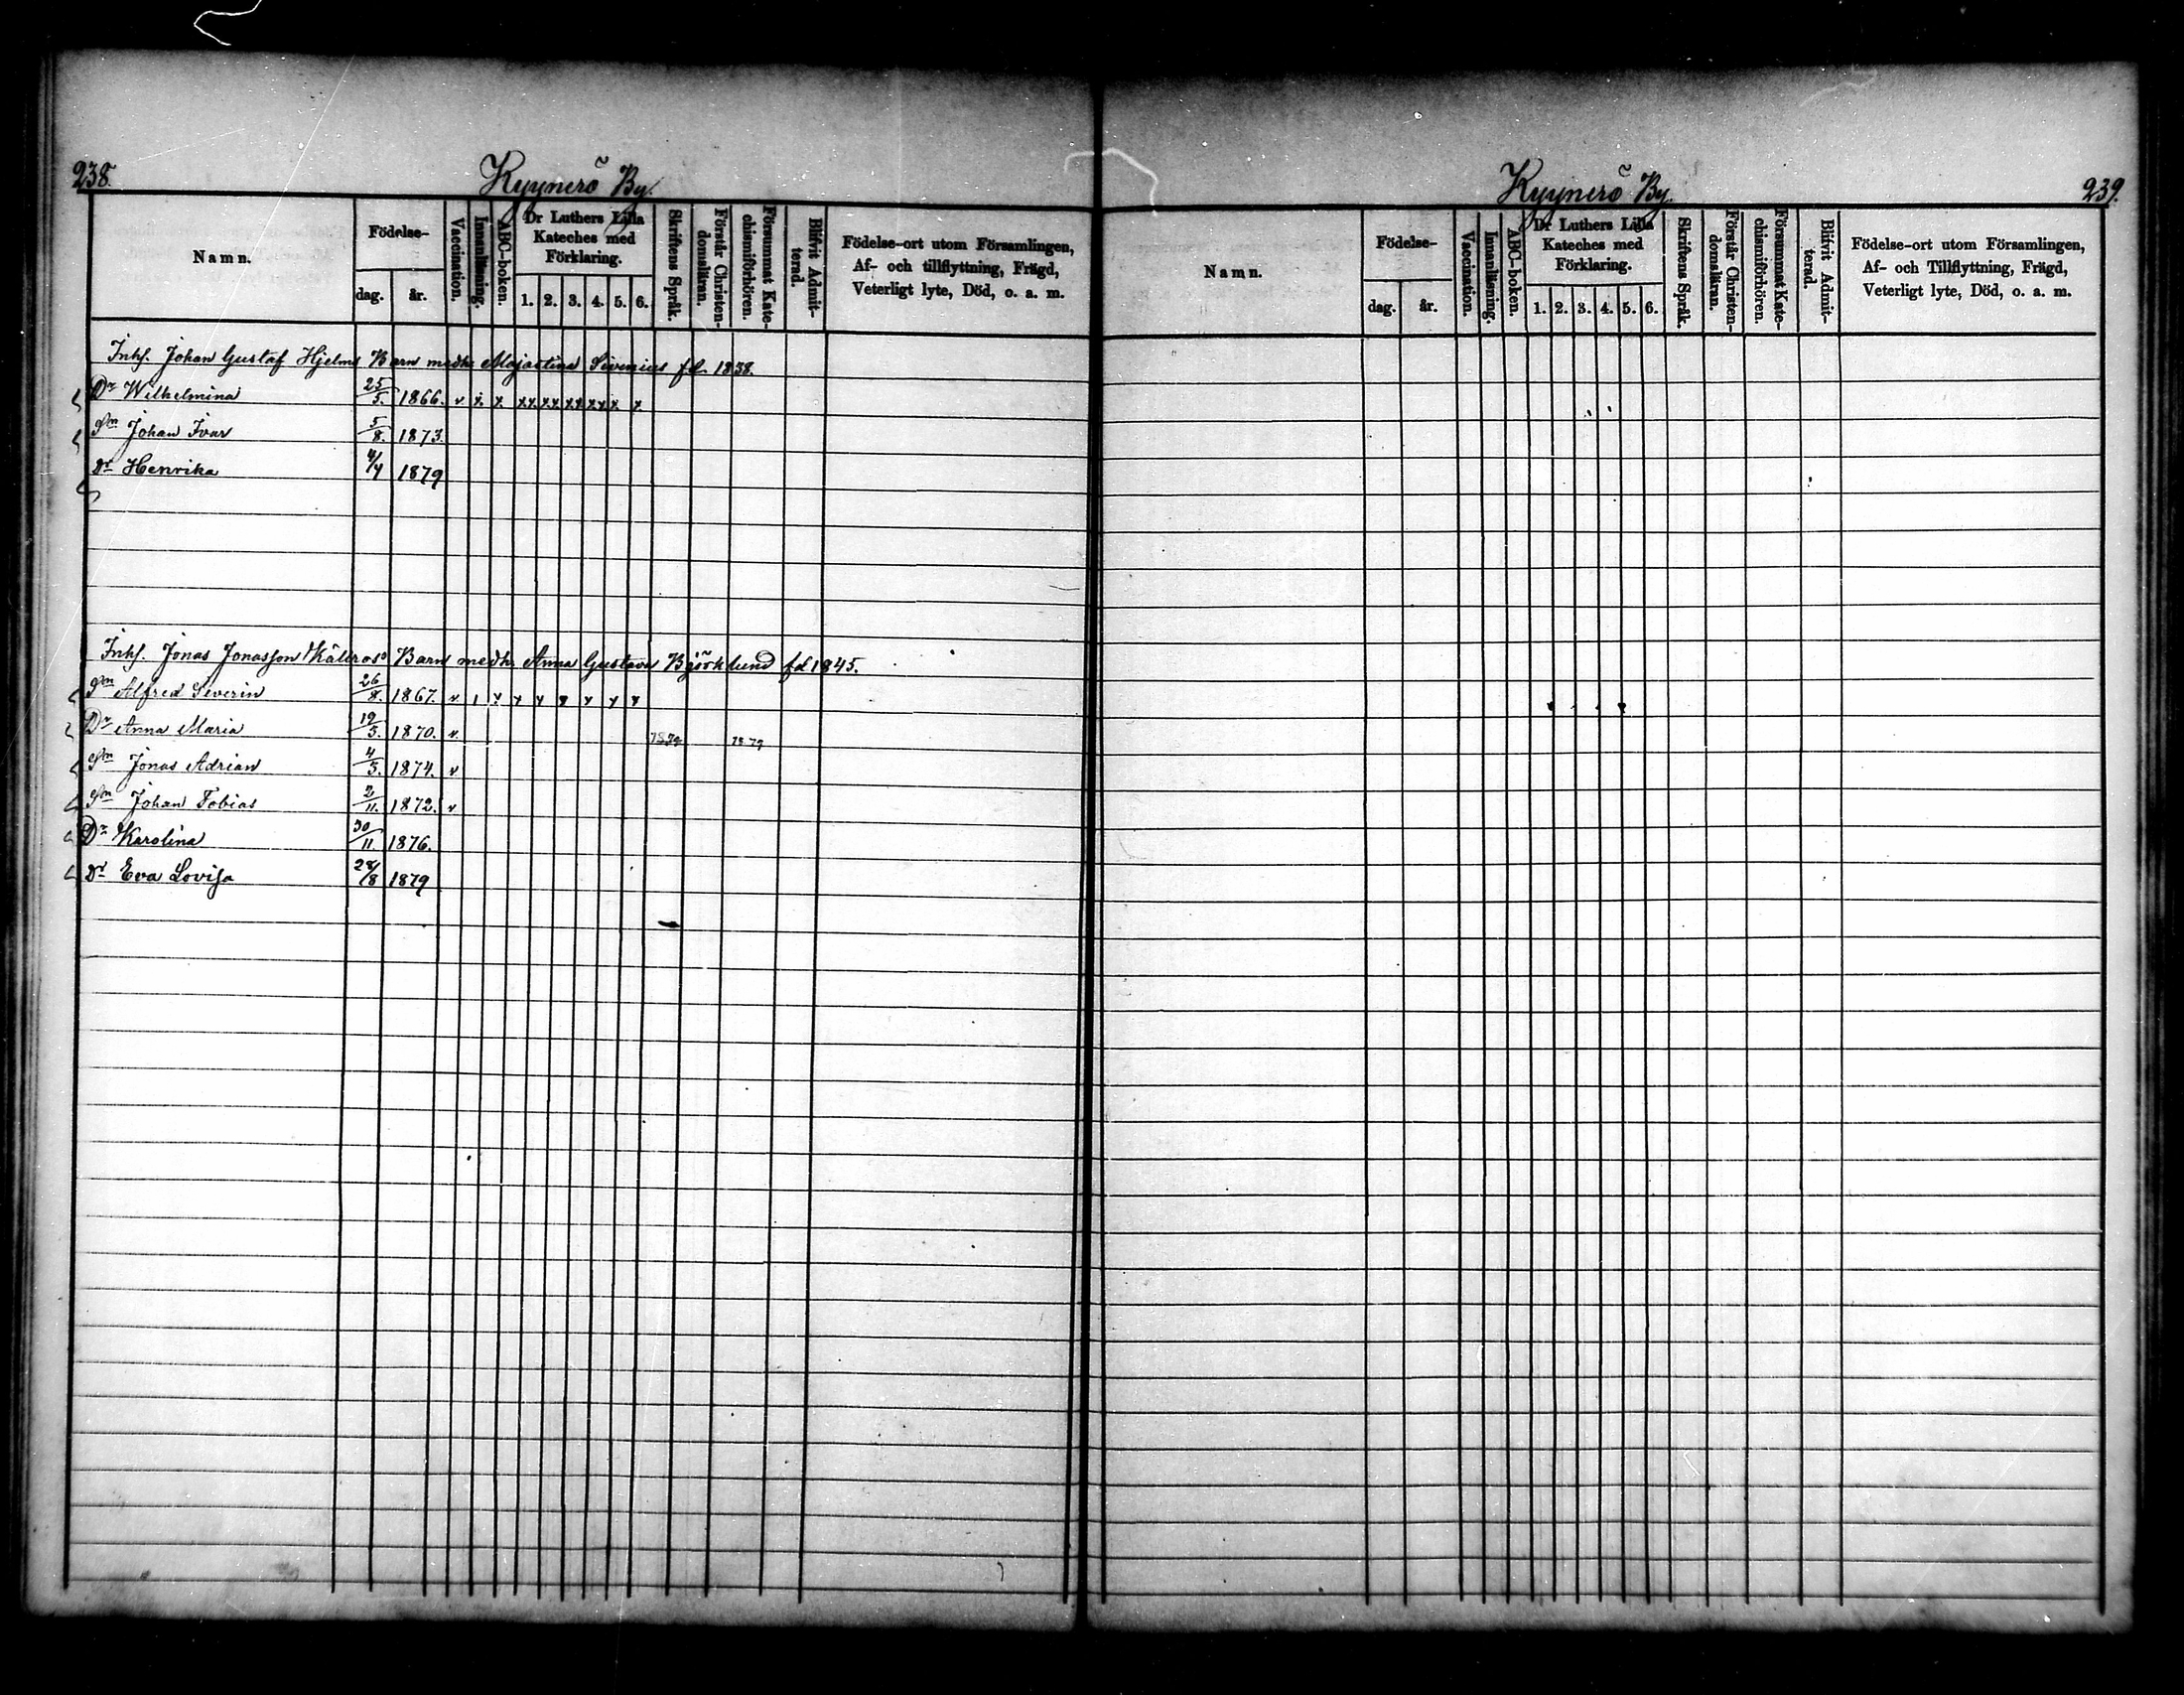 238.
Kyynerö By.
Namn.
Födelse-
dag. år.
Vaccination.
Innanläsning.
ABC-boken.
Dr Luthers Lilla
Kateches med
Förklaring.
1. 2. 3. 4. 5. 6.
Skriftens Språk.
Förstår Christen-
domsläran.
Försummat Kate-
chismiförhören.
Blifvit Admit-
terad.
Födelse-ort utom Församlingen,
Af- och tillflyttning, Frägd,
Veterligt lyte, Död, o. a. m.
Inhs. Johan Gustaf Hjelms Barn medh. Majastina Sivenius fd. 1838.
Dr Wilhelmina 25/5. 1866. v x x xx xx xx xx x x
Sn Johan Ivar 5/8. 1873.
Dr Henrika 4/4 1879
Inhs. Jonas Jonasson Barn medh. Anna Gustava Björklund fd 1845.
Sn Alfred Severin 26/8. 1867. v
Dr Anna Maria 19/3. 1870. v 1879 1879
Sn Jonas Adrian 4/3. 1874. v
Sn Johan Tobias 2/11. 1872. v
Dr Karolina 30/11 1876.
Dr Eva Lovisa 28/8 1879
Kyynerö By.
239.
Namn.
Födelse-
dag. år.
Vaccination.
Innanläsning.
ABC-boken.
Dr Luthers Lilla
Kateches med
Förklaring.
1. 2. 3. 4. 5. 6.
Skriftens Språk.
Förstår Christen-
domsläran.
Försummat Kate-
chismiförhören.
Blifvit Admit-
terad.
Födelse-ort utom Församlingen,
Af- och Tillflyttning, Frägd,
Veterligt lyte, Död, o. a. m.